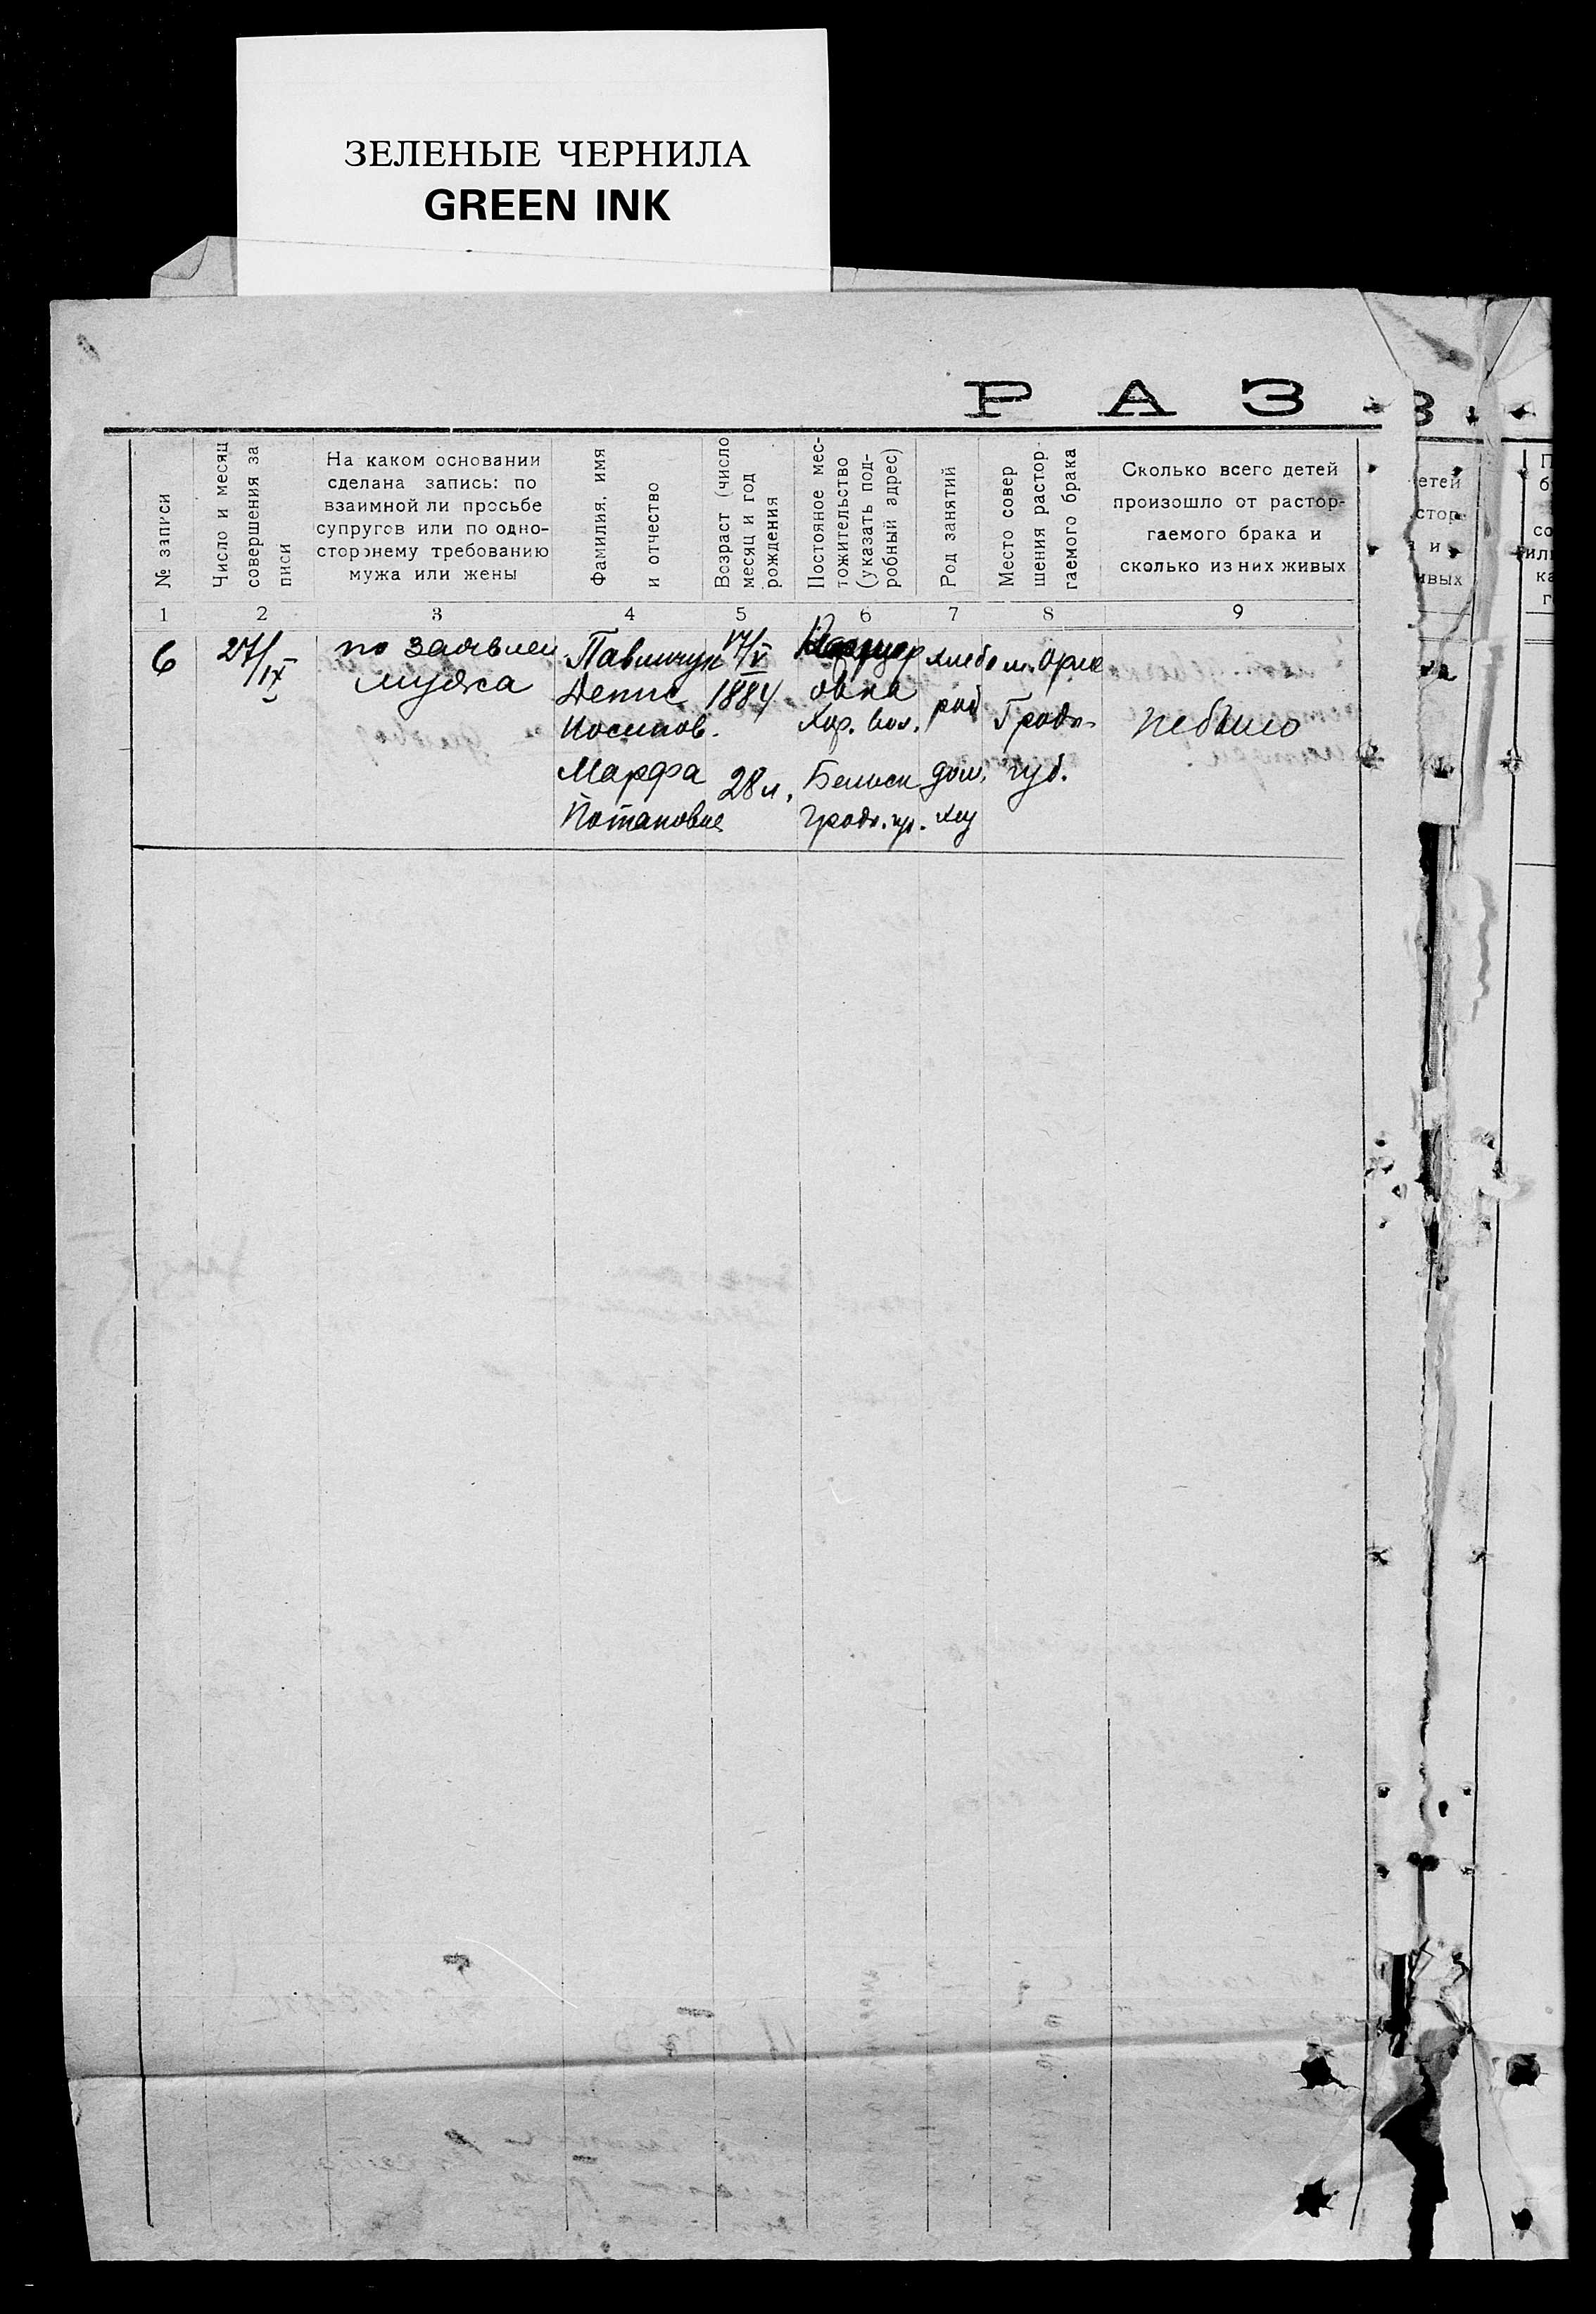 ЗЕЛЕНЫЕ ЧЕРНИЛА
GREEN INK
Р А З
№ записи
Число и месяц
совершения за
писи
На каком основании
сделана запись: по
взаимной ли просьбе
супругов или по одно-
стороннему требованию
мужа или жены
Фамилия, имя
и отчество
Возраст (число
месяц и год
рождения
Постоянное мес-
тожительство
(указать под-
робный адрес)
Род занятий
Место совер
шения растор-
гаемого брака
Сколько всего детей
произошло от растор-
гаемого брака и
сколько из них живых
1 2 3 4 5 6 7 8 9
6
27/IX
по заявлен
мужа
Павлинчук
Денис
Иосипов.
Марфа
Потаповна
17/V
1884
28 л.
овка
Хор. вол.
Бельск
Гродн. гу.
хлебо
роб
дом.
хоз
м. Орле
Гродн.
губ.
небыло
етей
стор-
и
ивых